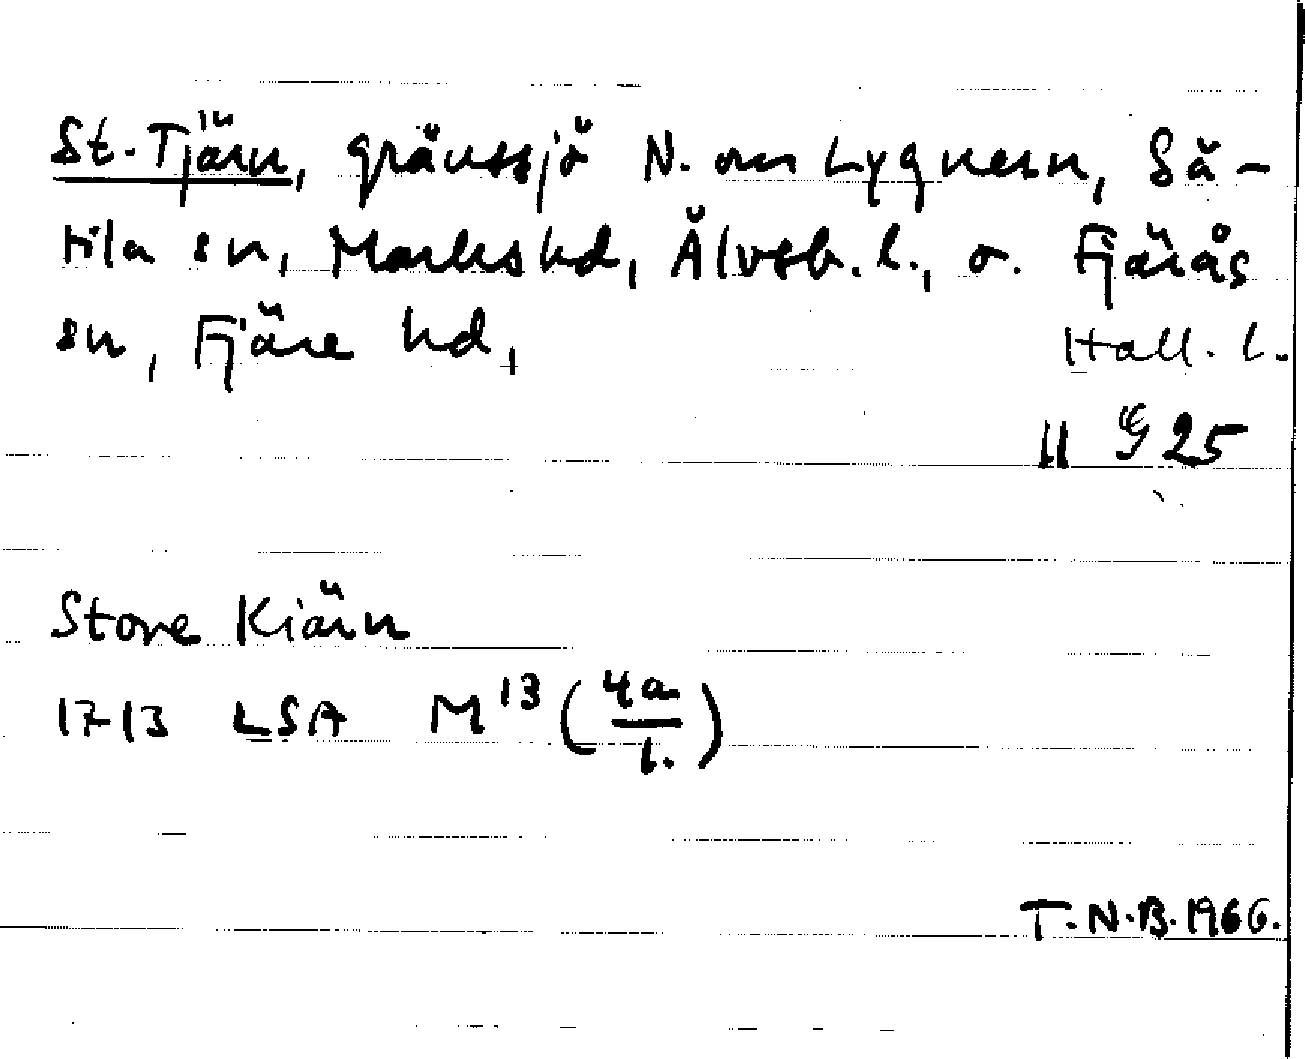 St. Tjärn, gränssjö N. om Lygnern, Sä-
tila sn, Marks hd, Älvsb. l., o. Fjärås
sn, Fjäre hd, Hall. l.
11 G 25
Store Kiärn
1713 LSA M13 (4a/1.)
T.N.B. 1966.